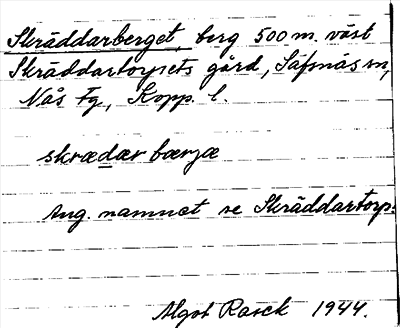 Skräddarberget, berg 500 m. väst
Skräddartorpets gård, Säfsnäs sn,
Nås fg, Kopp. l.
skrædær bærjæ
Ang. namnet se Skräddartorp.
Algot Rasck 1944.